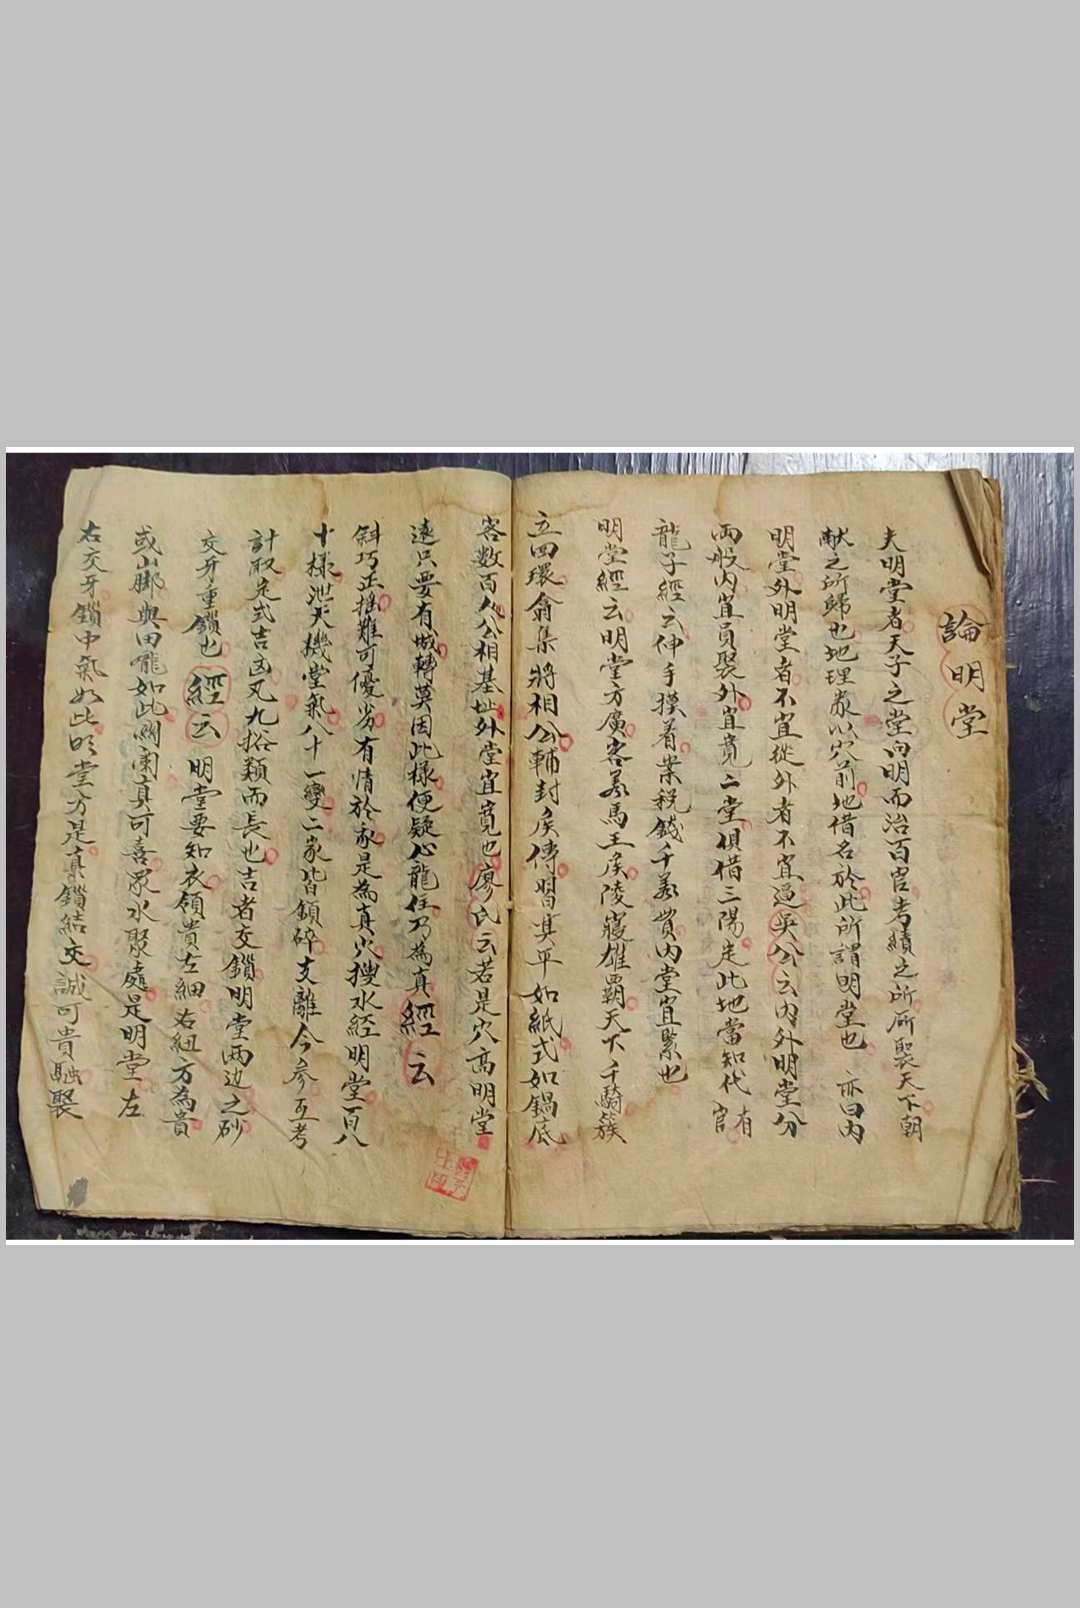 論明堂
夫明堂者天子之堂向明而治百官考績之所所聚天下朝
献之所歸也地理家以穴前地借名於此所謂明堂也 亦曰内
明堂外明堂者不宜從外者不宜逼吳公云内外明堂分
兩般内宜員聚外宜寬二堂俱借三陽定此地當知代有官
龍子經云伸手摸着案税錢千萬貫内堂宜緊也
明堂經云明堂方廣容萬馬王侯陵寢雄覇天下千騎簇
立四環翕集將相公輔封侯傳習其平如紙式如鍋底
容数百人公相基址外堂宜寬也廖氏云若是穴高明堂
遠只要有城轉莫因此樣便疑心龍住乃為真經云
斜巧正 難可優劣有情於家是為真穴搜水經明堂百八
十樣泄天機堂氣八十一變二家皆鎖碎支離今參互考
計取定式吉凶凡九 類而長也吉者交鎖明堂兩边之砂
交牙重鎖也經云明堂要知衣領貴左細右紐方為貴
或山脚與田隴如此関闌真可喜眾水聚處是明堂左
右交牙鎖中氣如此明堂方是真鎖結交誠可貴融聚